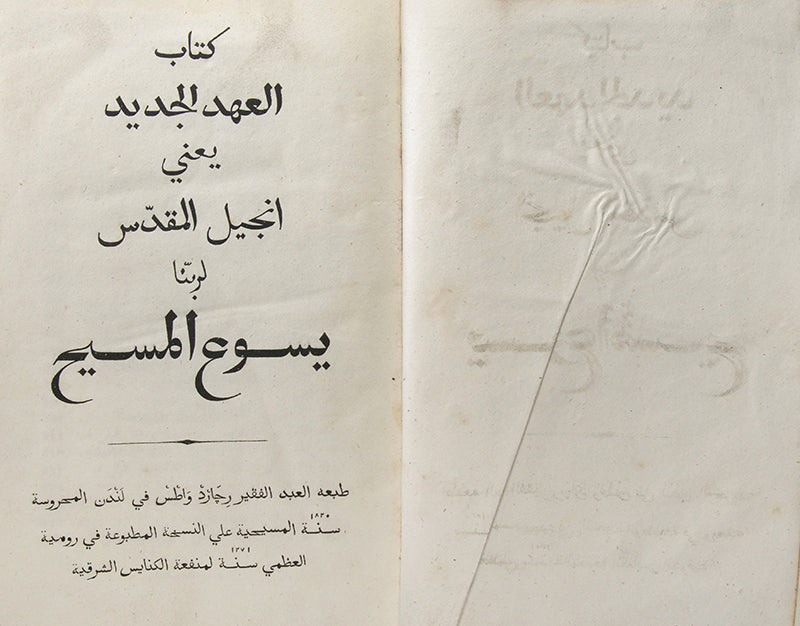 كتاب
العهد الجديد
يعني
انجيل المقدّس
لربّنا
يسوع المسيح
طبعه العبد الفقير رِچَارْدْ وَاطْسْ في لَنْدَن المحروسة
سنة ١٨٢٠ المسيحية علي النسخة المطبوعة في رومية
العظمي سنة ١٦٧١ لمنفعة الكنايس الشرقية